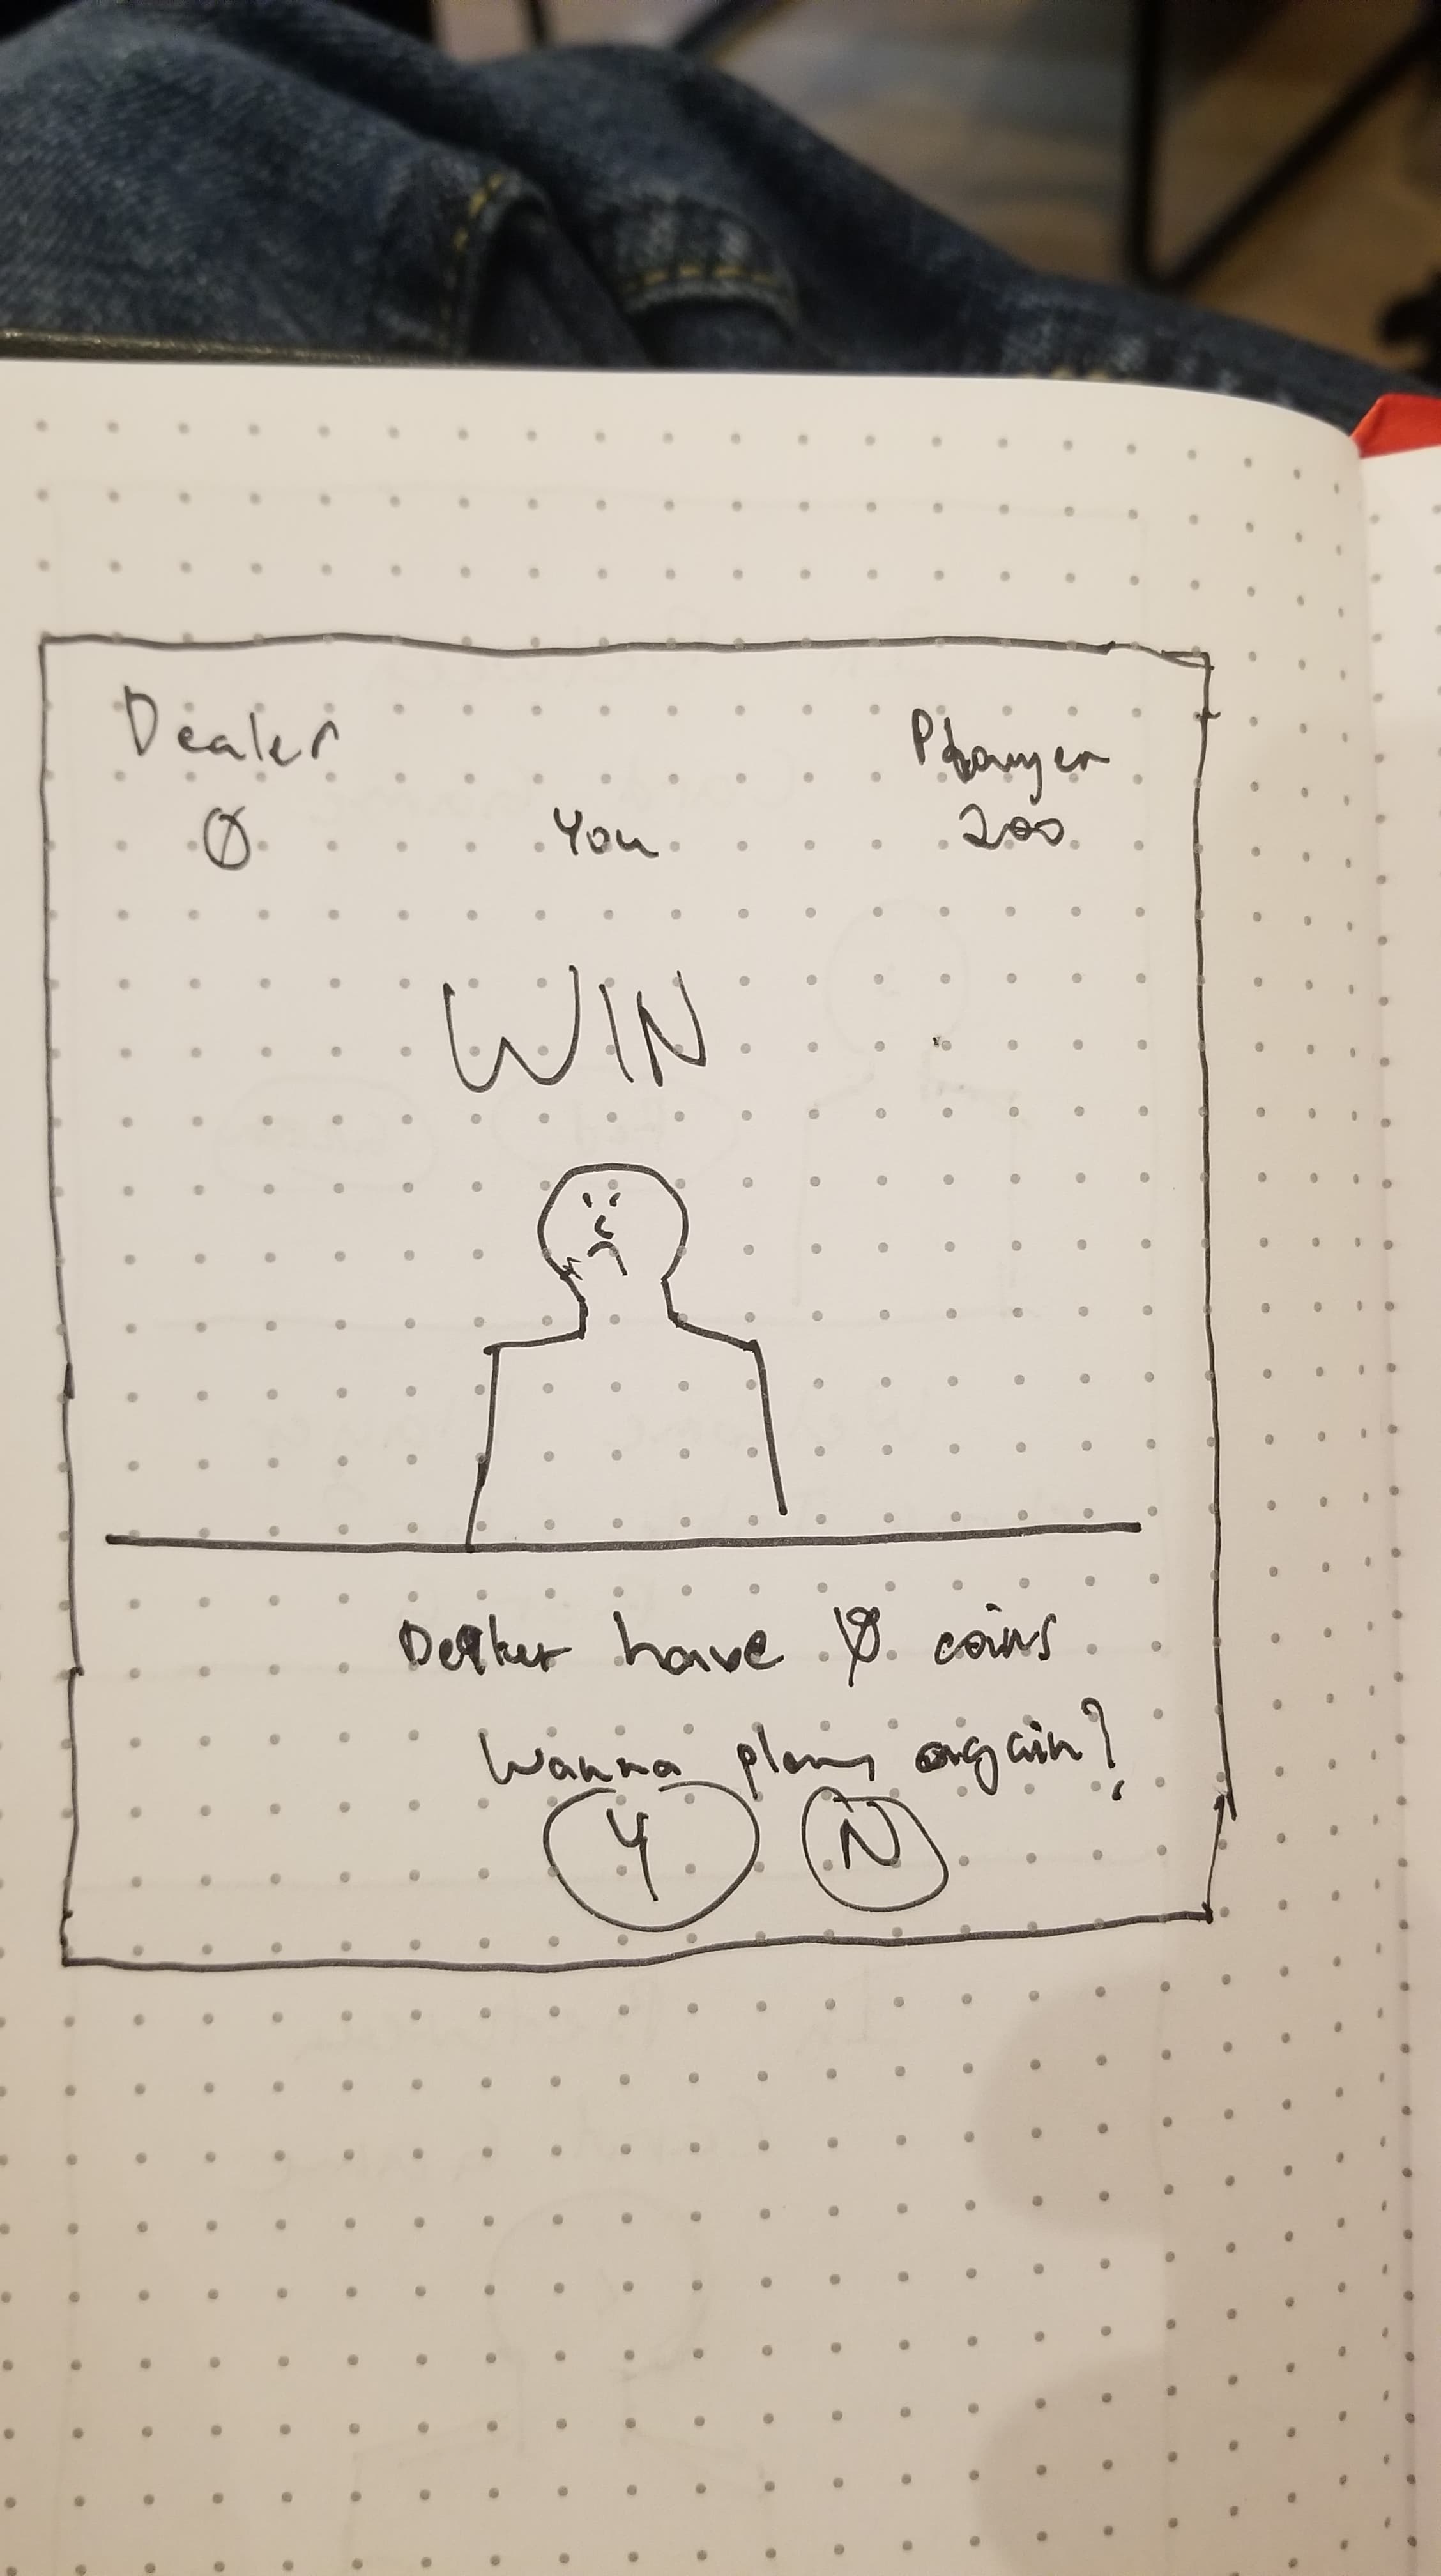 Dealer
Player
0
You
200
WIN
Dealer have 0 coins
Wanna play again?
Y N